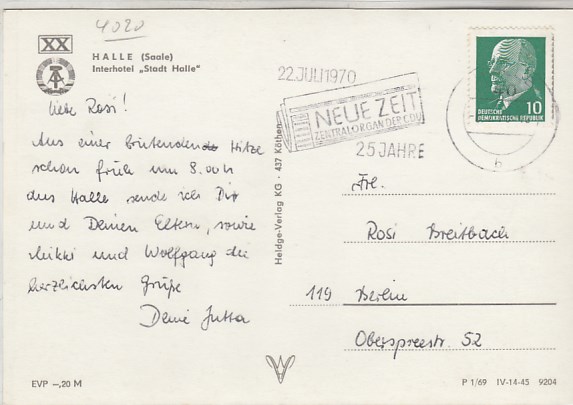 4020
XX
HALLE (Saale)
Interhotel „Stadt Halle"
Liebe Rosi!
Aus einer brütenden Hitze
schon früh um 8.00 h
aus Halle sende ich Dir
und Deinen Eltern, sowie
Mikki und Wolfgang die
herzlichsten Grüße
Deine Jutta
EVP –,20 M
Heldge-Verlag KG · 437 Köthen
22.JULI1970
NEUE ZEIT
ZENTRALORGAN DER CDU
25 JAHRE
DEUTSCHE
DEMOKRATISCHE REPUBLIK
10
h
Frl.
Rosi Breitbach
119 Berlin
Oberspreestr. 52
P 1/69 IV-14-45 9204